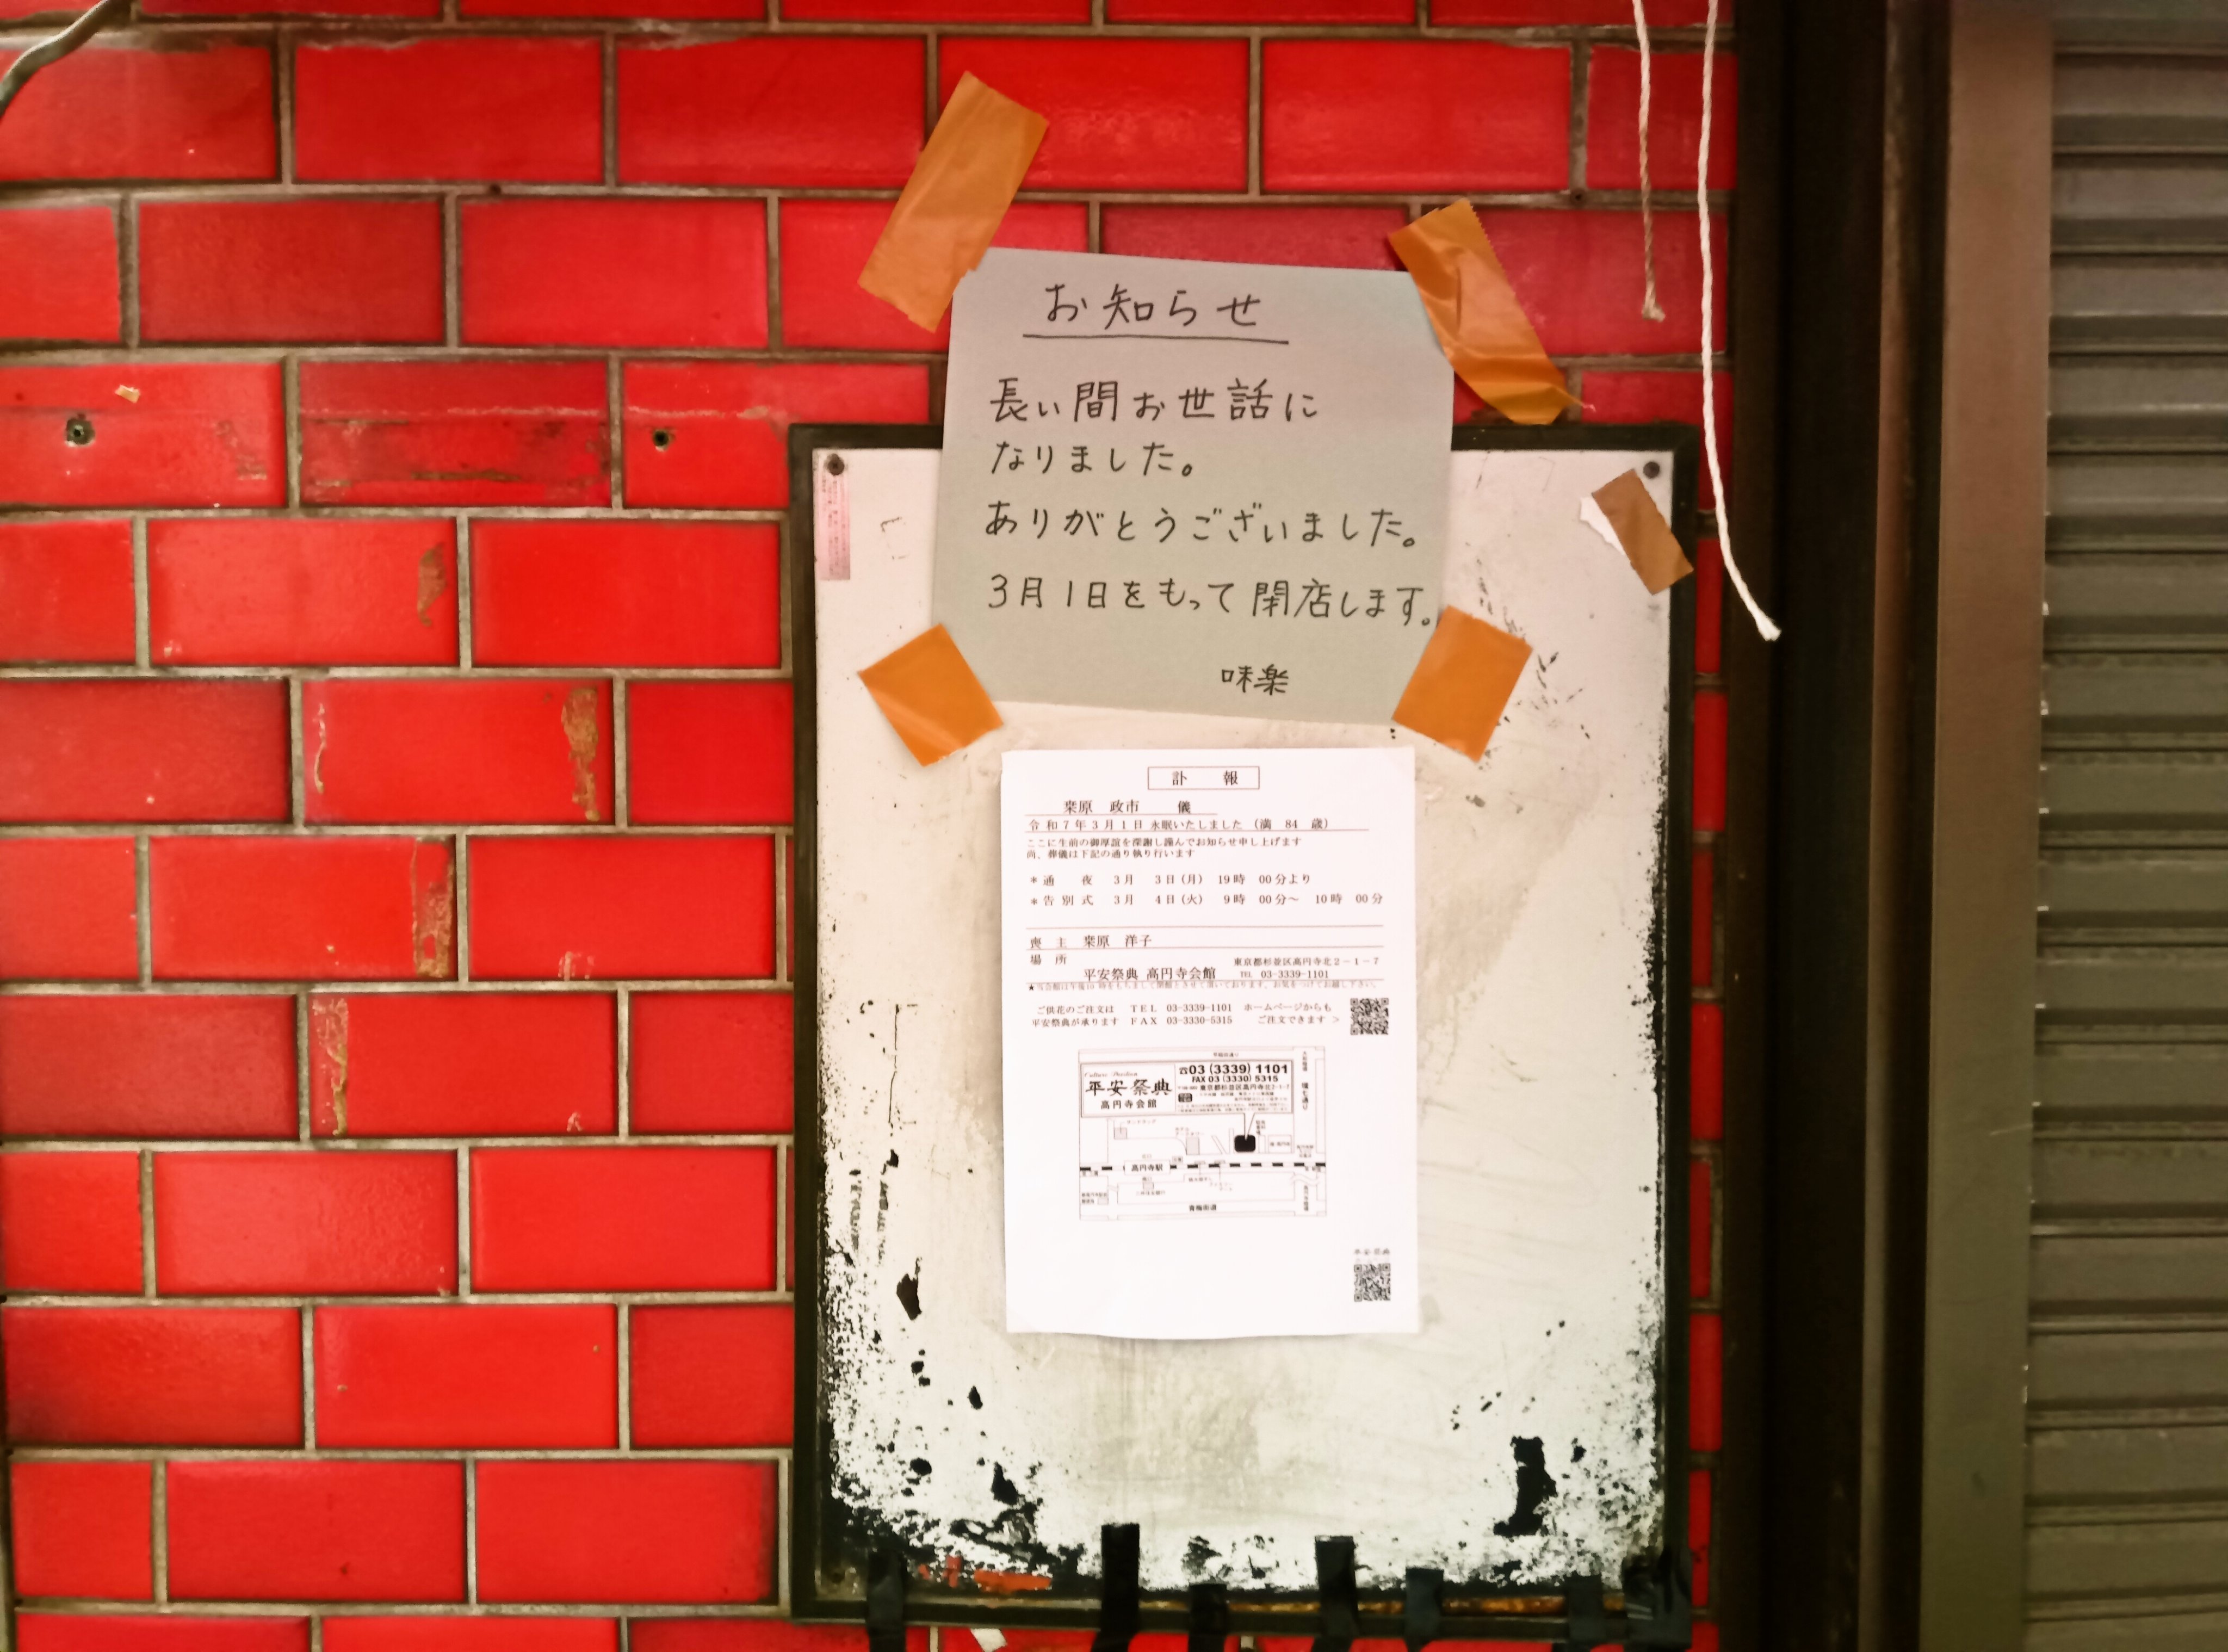 お知らせ
長い間お世話に
なりました。
ありがとうございました。
3月1日をもって閉店します。
味楽
訃 報
桒原 政市 儀
令和7年3月1日 永眠いたしました (満 84 歳)
ここに生前の御厚誼を深謝し謹んでお知らせ申し上げます
尚、葬儀は下記の通り執り行います
*通 夜 3月 3日(月) 19時 00分より
*告別式 3月 4日(火) 9時 00分～ 10時 00分
喪 主 桒原 洋子
場 所
東京都杉並区高円寺北2-1-7
平安祭典 高円寺会館 TEL 03-3339-1101
ご供花のご注文は TEL 03-3339-1101 ホームページからも
平安祭典が承ります FAX 03-3330-5315 ご注文できます >
平安祭典
高円寺会館
☎03(3339)1101
FAX 03(3330)5315
東京都杉並区高円寺北2-1-7
環七通り
高円寺駅
青梅街道
平安祭典